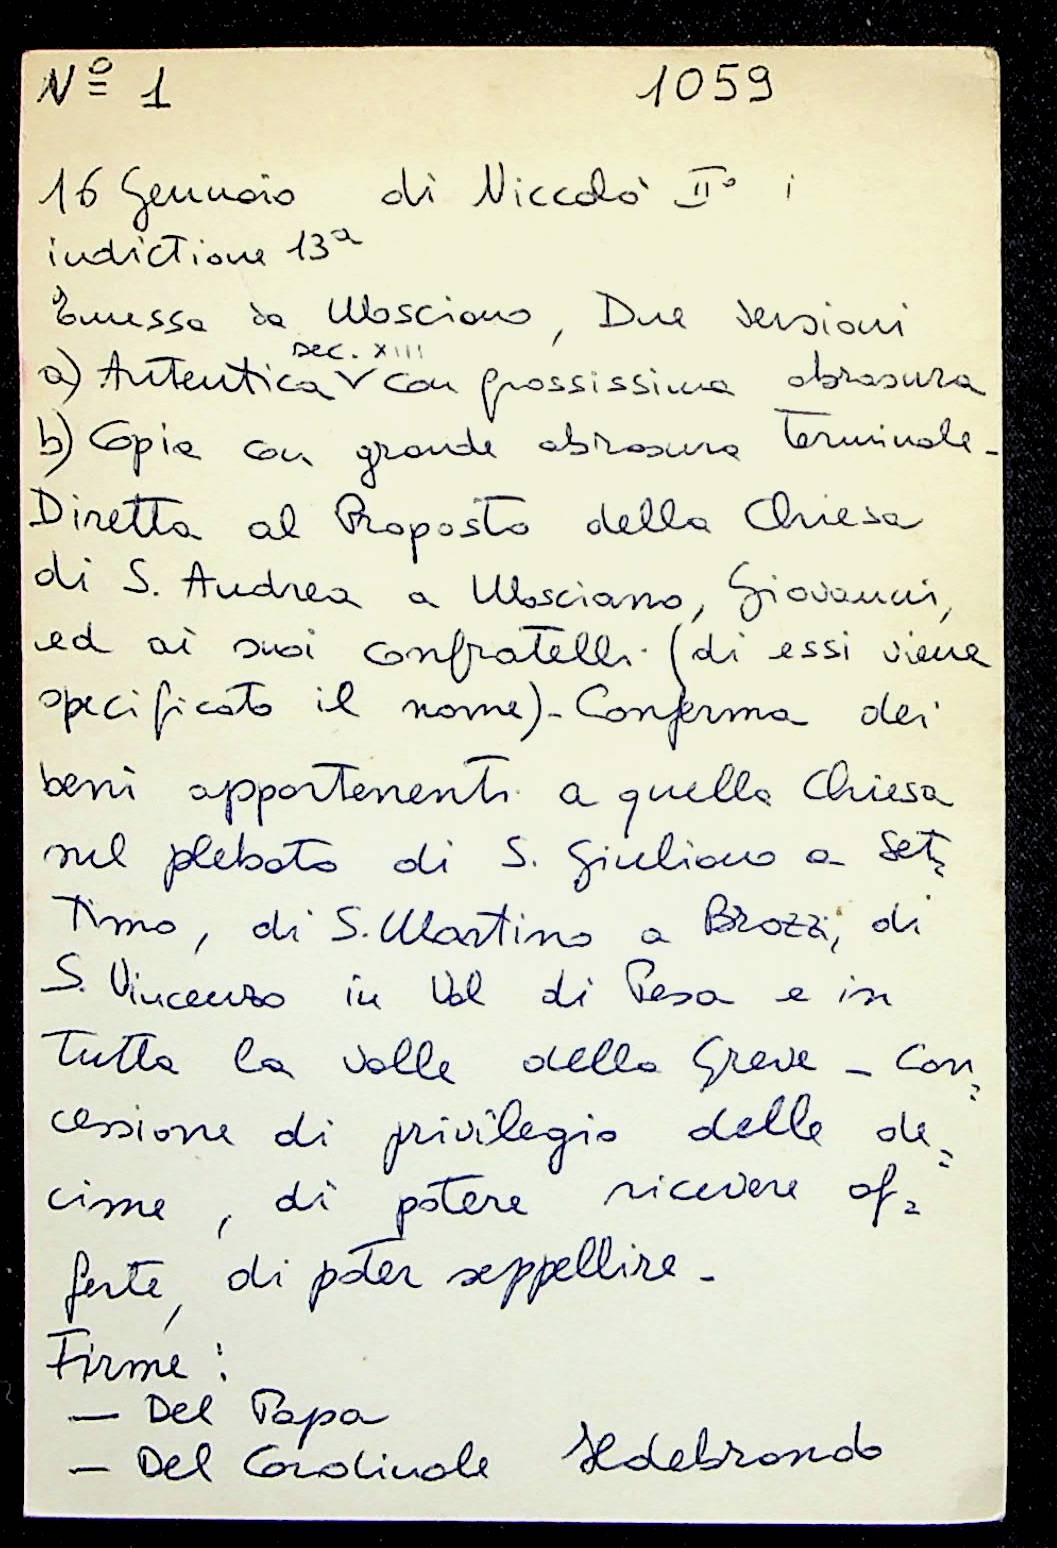 Nº 1 1059
16 Gennaio di Niccolò II° i
indictione 13ª
Emessa da Mosciano, Due versioni
sec. XIII
a) Autentica V con grossissima abrasura
b) Copia con grande abrasura terminale -
Diretta al Proposto della Chiesa
di S. Andrea a Mosciano, Giovanni,
ed ai suoi confratelli (di essi viene
specificato il nome) - Conferma dei
beni appartenenti a quella Chiesa
nel plebato di S. Giuliano a Set=
timo, di S. Martino a Brozzi, di
S. Vincenzo in Val di Pesa e in
tutta la valle della Greve - Con=
cessione di privilegio delle de=
cime, di potere ricevere of=
ferte, di poter seppellire -
Firme:
— Del Papa
— Del Cardinale Ildebrando